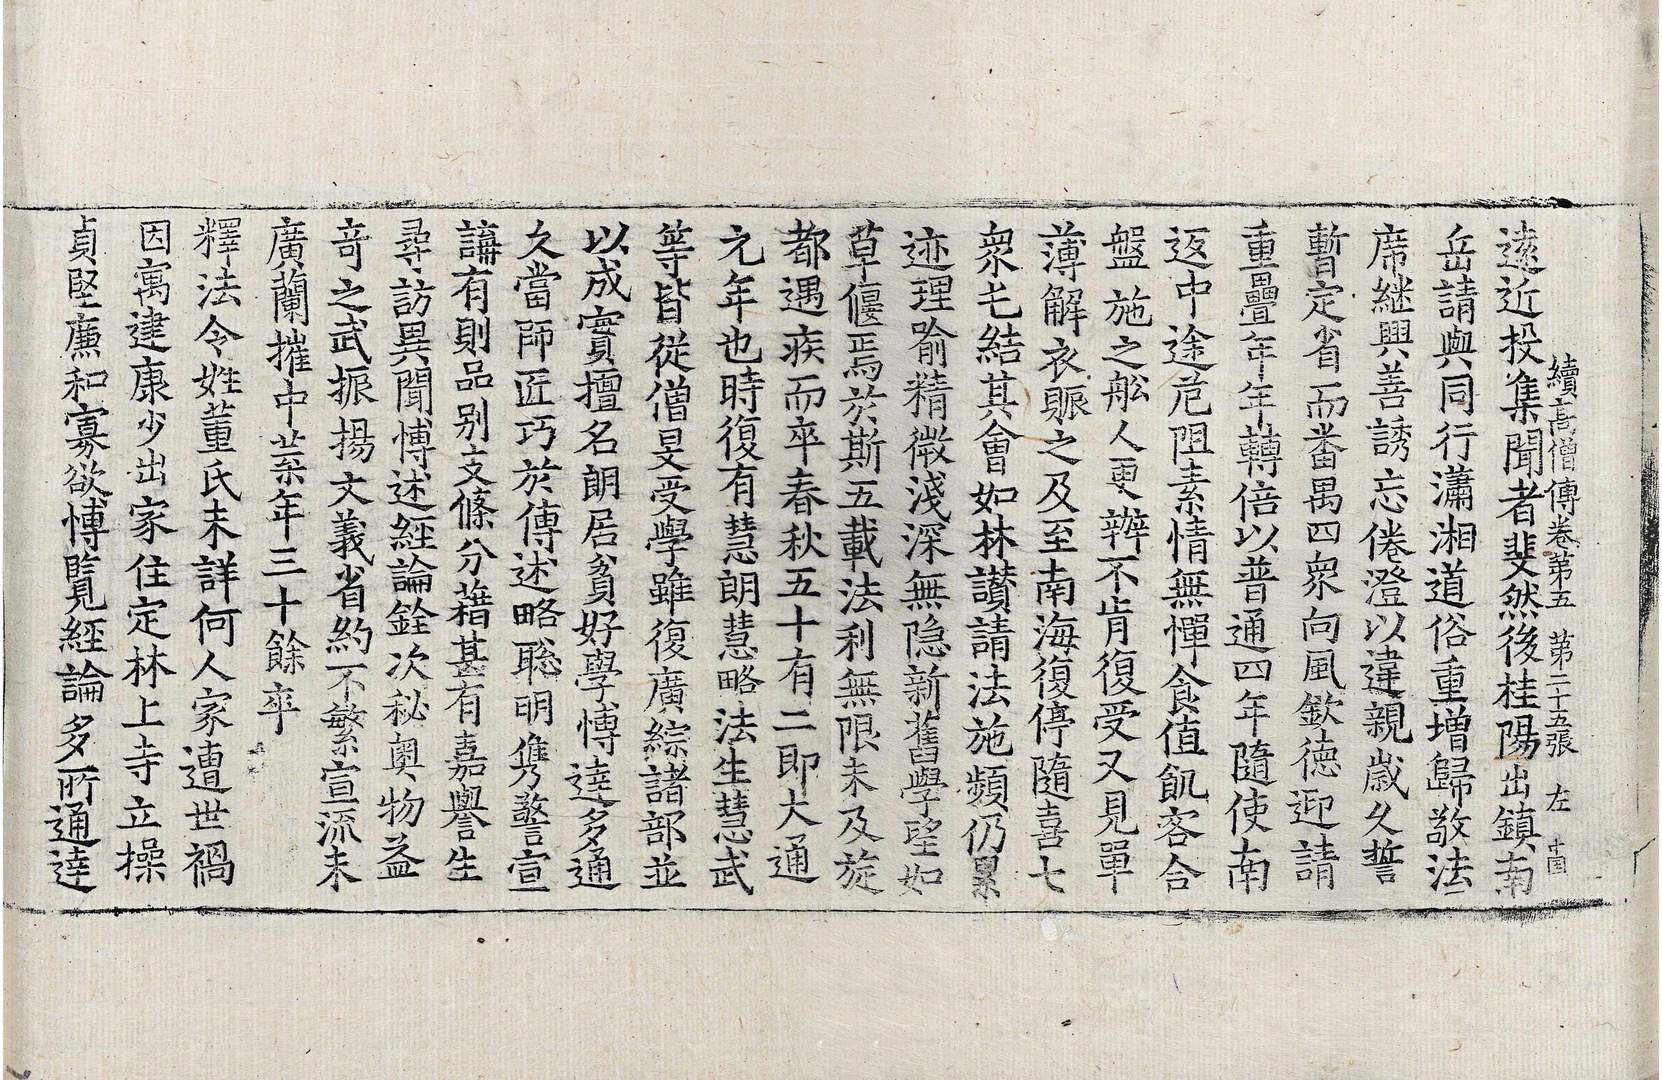 續高僧傳卷第五　第二十五張　左
遠近投集聞者斐然後桂陽出鎮南
岳請與同行瀟湘道俗重增歸敬法
席継興善誘忘倦澄以違親歲久誓
暫定省而番禺四衆向風欽德迎請
重疊年年轉倍以普通四年隨使南
返中途危阻素情無憚食值飢客合
盤施之舩人更辦不肯復受又見單
薄解衣賑之及至南海復停隨喜七
衆屯結其會如林讃請法施頻仍累
迹理喻精微淺深無隱新舊學望如
草偃焉於斯五載法利無限未及旋
都遇疾而卒春秋五十有二即大通
元年也時復有慧朗慧略法生慧武
等皆從僧旻受學雖復廣綜諸部並
以成實擅名朗居貧好學博達多通
久當師匠巧於傳述略聡明㑺警宣
講有則品别支條分藉甚有嘉譽生
尋訪異聞博述經論銓次秘奧物益
竒之武振揚文義省約不繁宣流未
廣蘭摧中葉年三十餘卒
釋法令姓董氏未詳何人家遭世禍
因寓建康少出家住定林上寺立操
貞堅廉和寡欲博覽經論多所通達